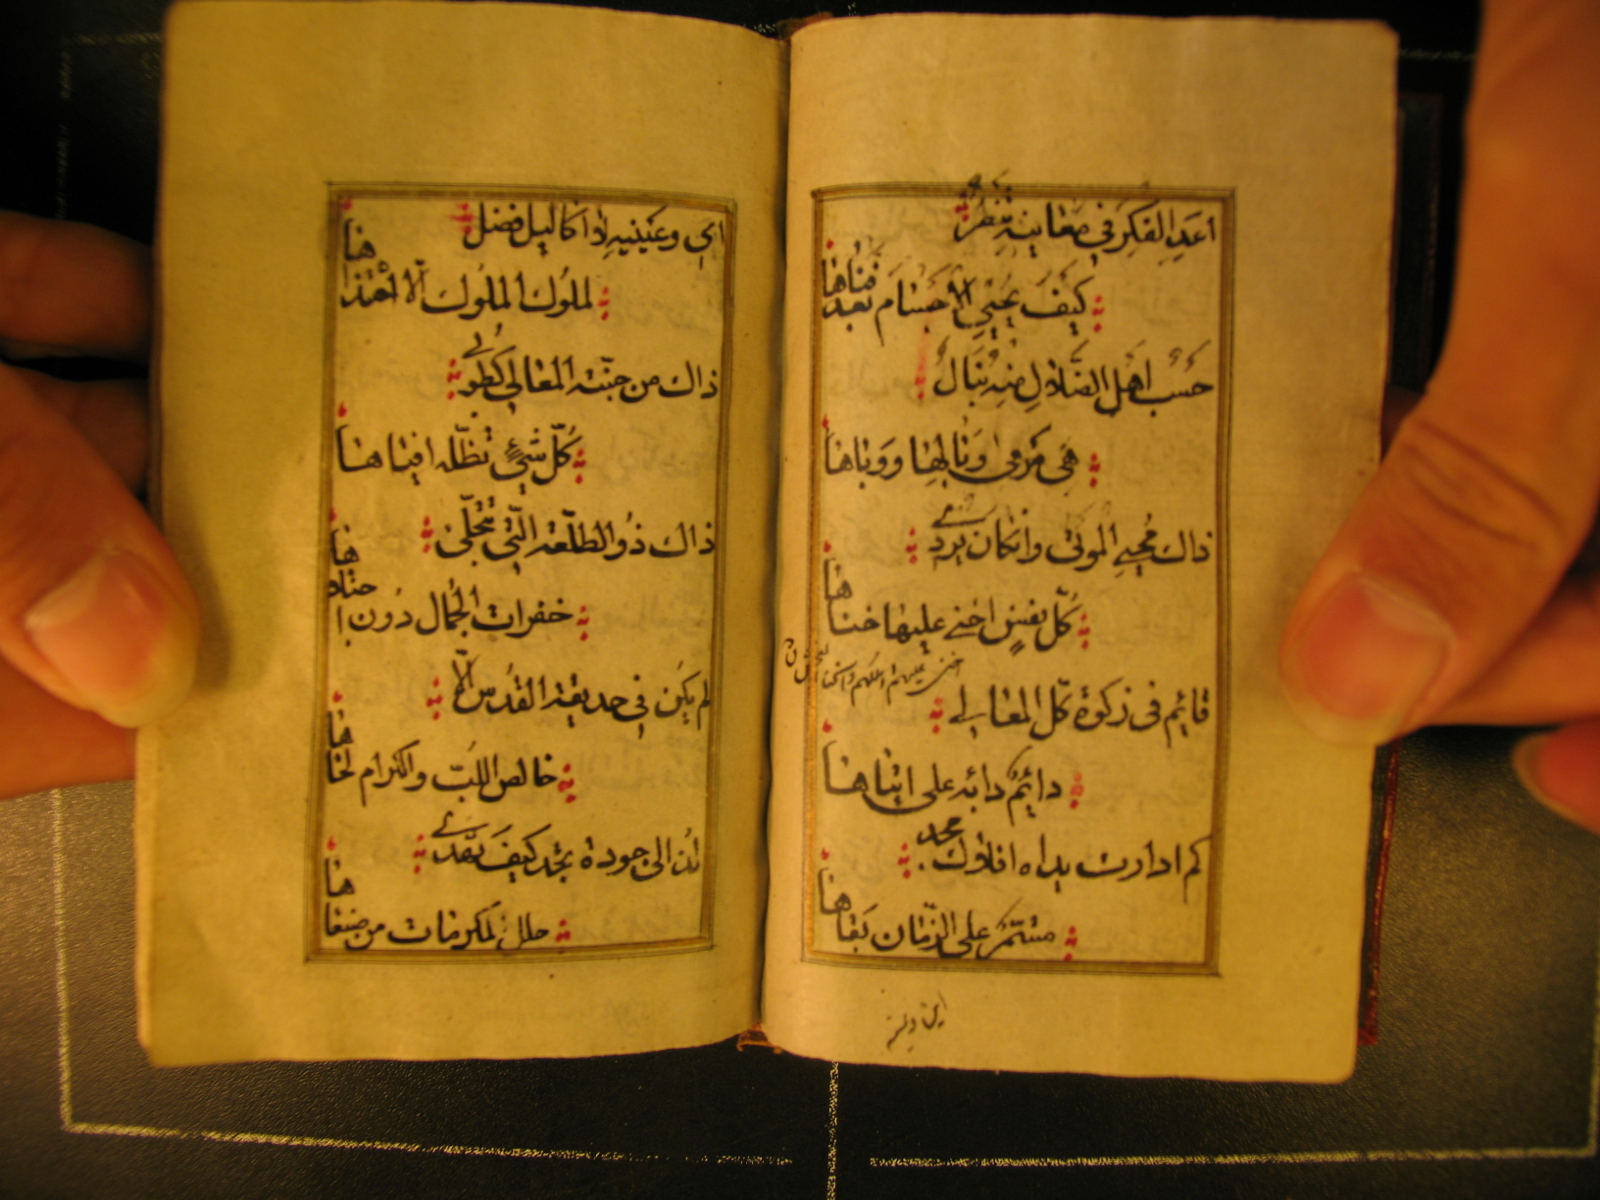 اعد الفكر في معانيه تنظر
كيف يحيي الاجسام بعد فناها
حسب اهل الضلال منه نبال
هي مرمى وبالها ووباها
ذاك محيي الموتى وان كان يردي
كل نفس اخنى عليها خناها
قائم في زكوة كل المعالي
دائم دائبه على ايتاها
كم ادارت يداه افلاك مجد
مستمر على الزمان بقاها
اي وعينيه اذ اكاليل فضل
لملوك الملوك الا احتذاها
ذاك من جنة المعالي كطوبى
كل شيئ تظله افياها
ذاك ذو الطلعة التي تتجلى
خفرات الجمال دون اجتلاها
لم يكن في حديقة القدس الا
خالص اللب والكرام لحاها
لذ الى جوده تجد كيف يهدي
حلل المكرمات من صنعاها